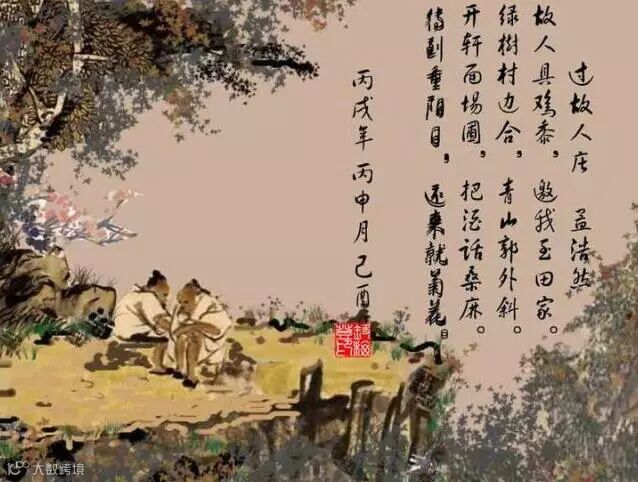 过故人庄 孟浩然
故人具鸡黍，邀我至田家。
绿樹村边合，青山郭外斜。
开轩面場圃，把酒话桑麻。
待到重阳日，还来就菊花。
丙戌年 丙申月 己酉
大数跨境